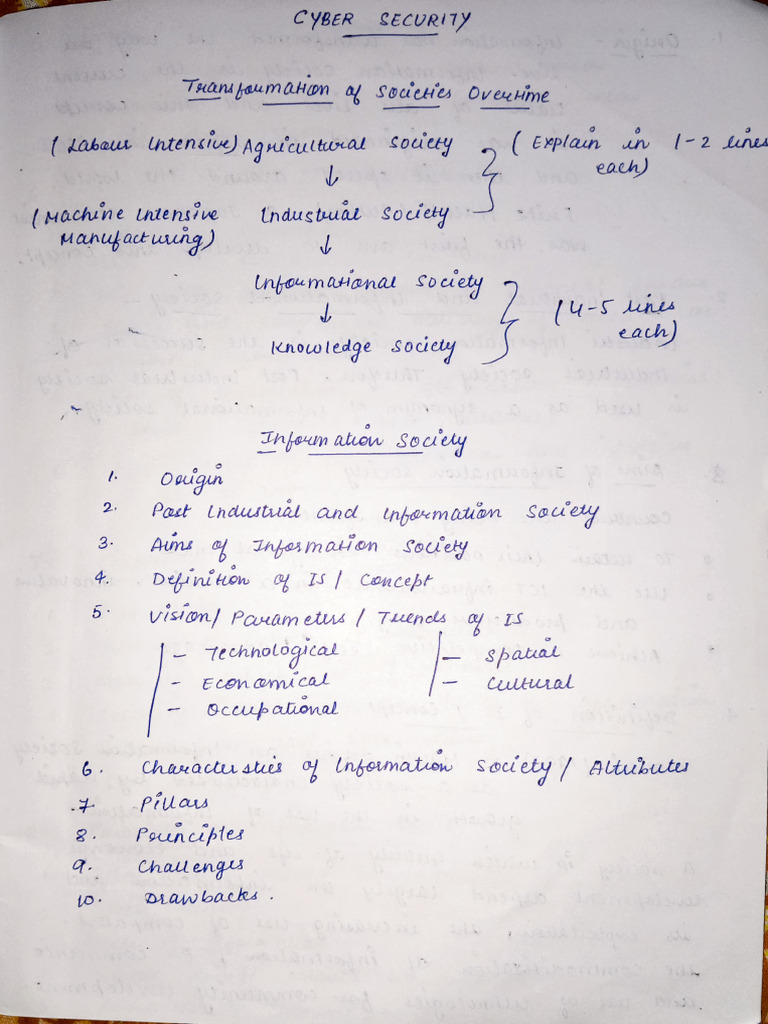 CYBER SECURITY
Transformation of Societies Overtime
(Labour Intensive) Agricultural Society (Explain in 1-2 lines each)
↓
(Machine Intensive Manufacturing) Industrial Society
↓
Informational Society
↓ (4-5 lines each)
Knowledge Society
Information Society
1. Origin
2. Post Industrial and Information Society
3. Aims of Information Society
4. Definition of IS / Concept
5. Vision / Parameters / Trends of IS
- Technological - Spatial
- Economical - Cultural
- Occupational
6. Characterstics of Information Society / Attributes
7. Pillars
8. Principles
9. Challenges
10. Drawbacks.